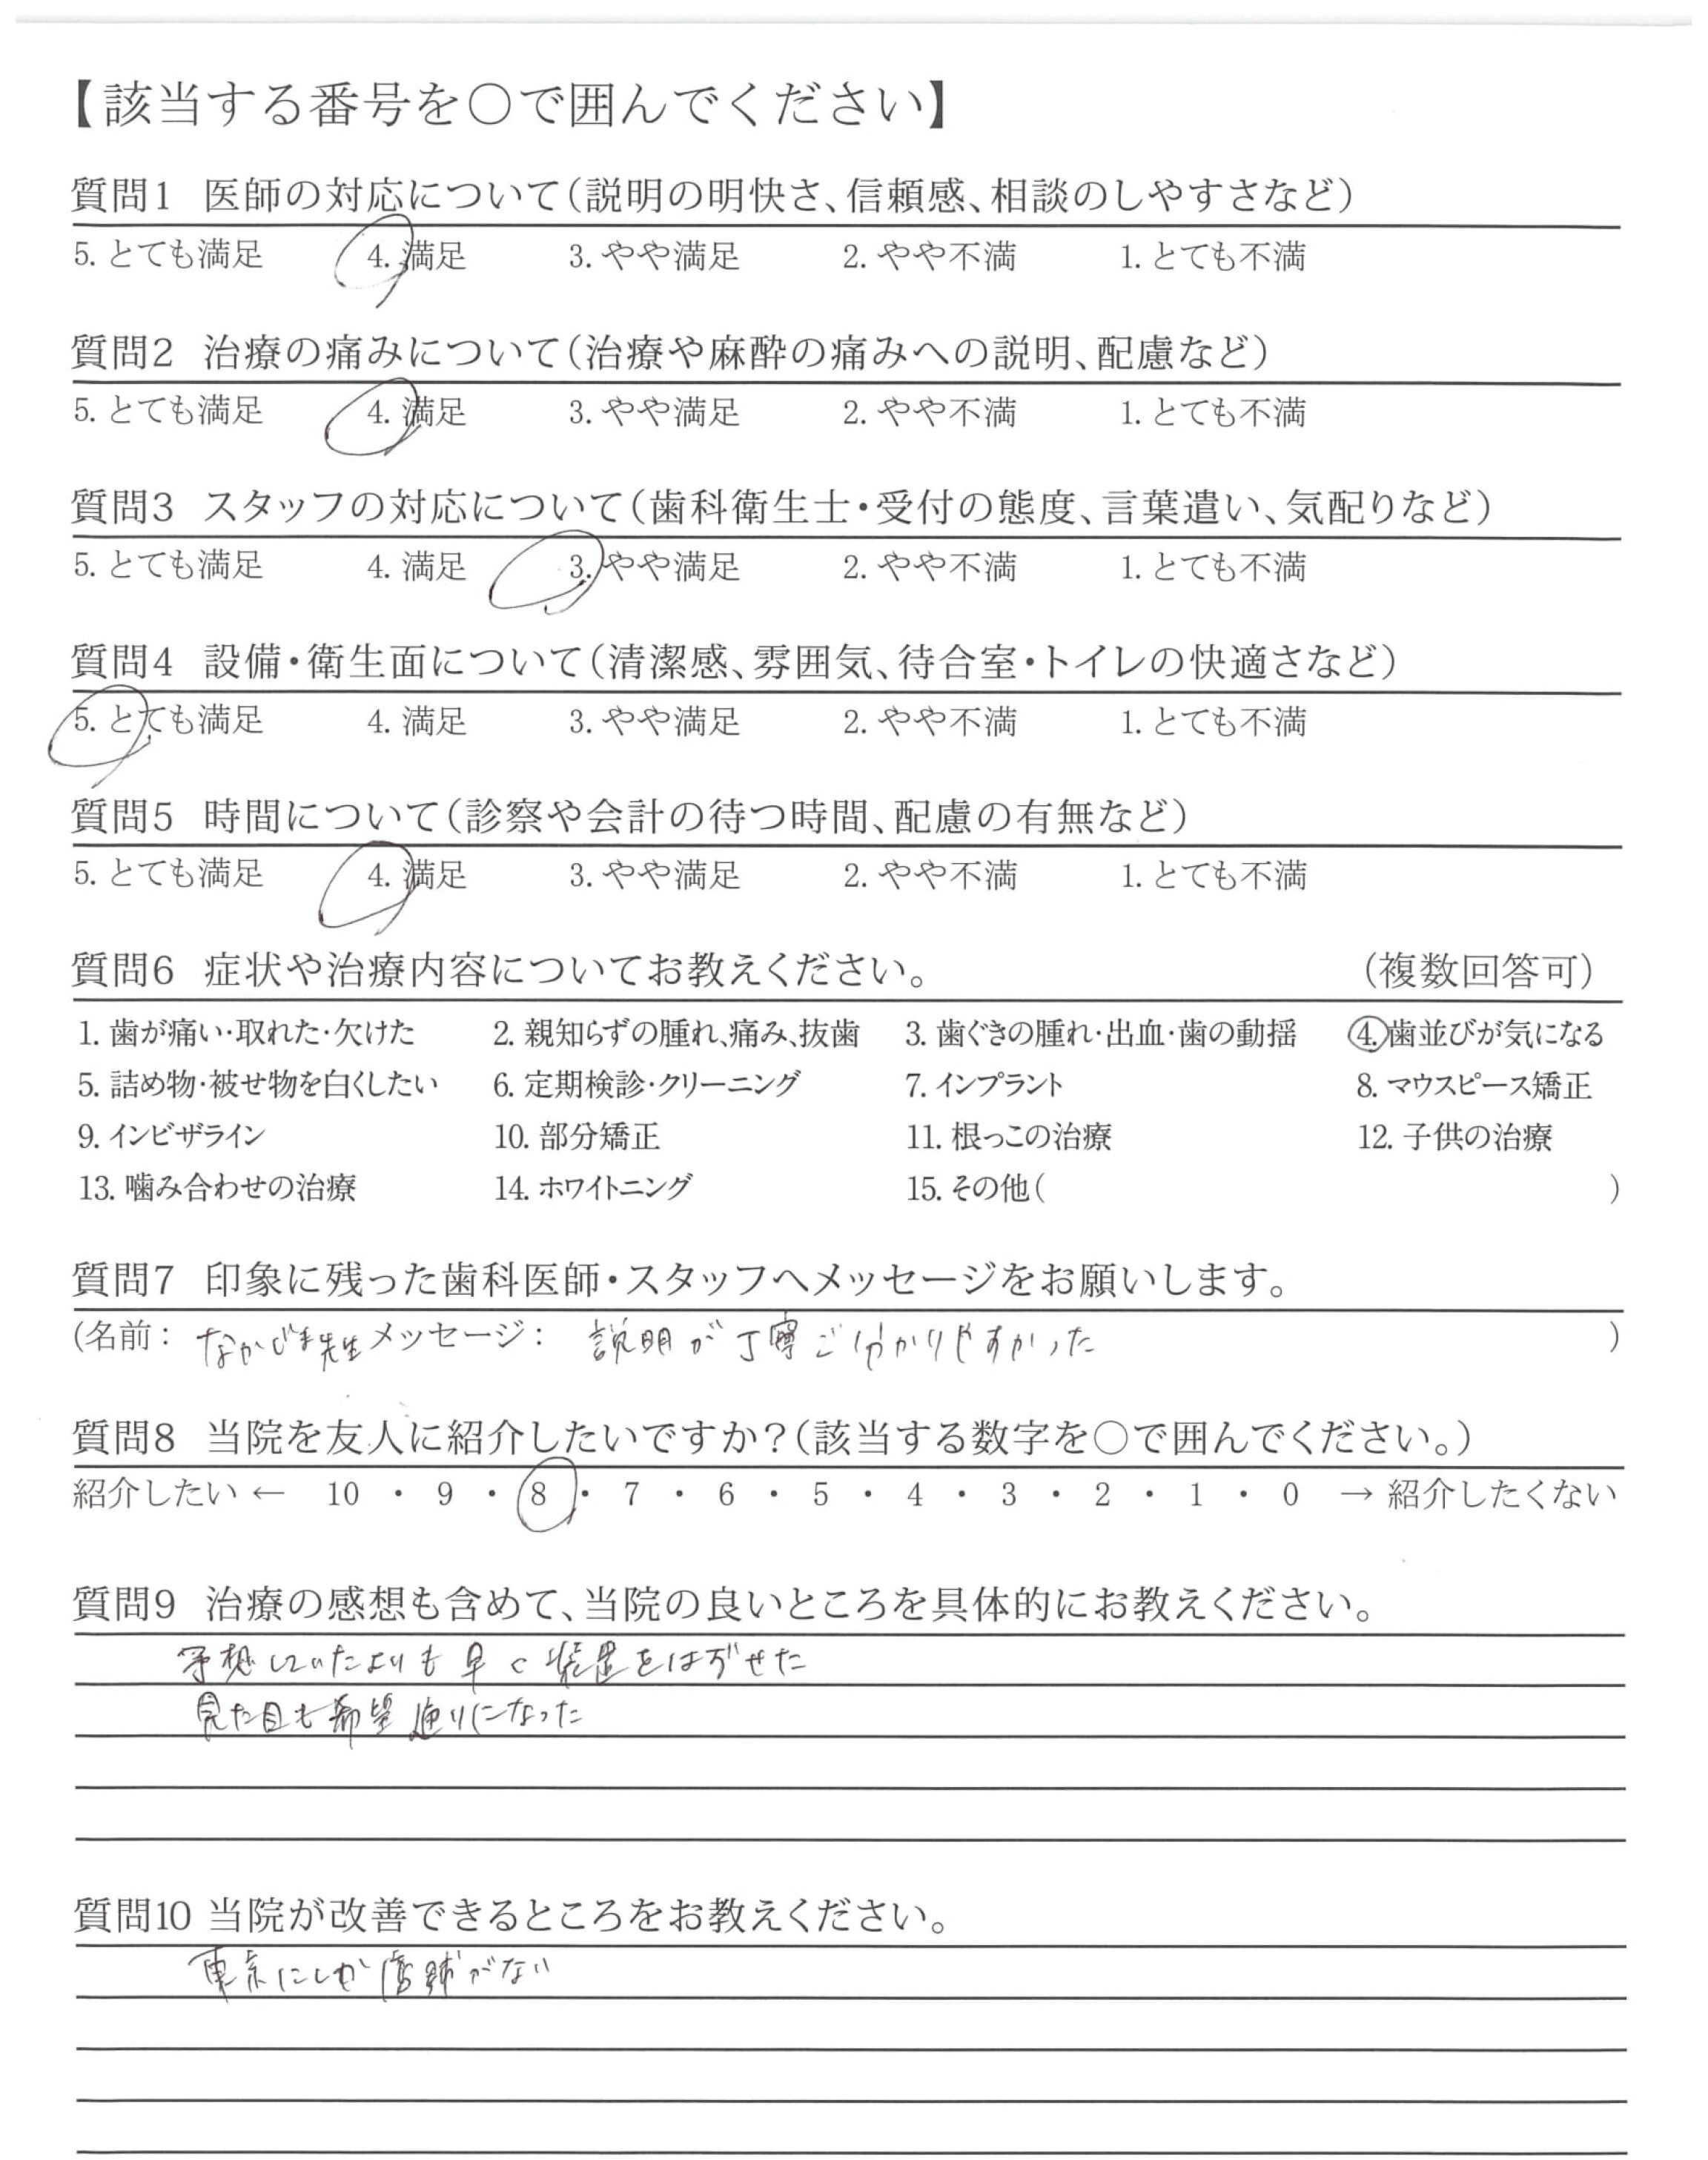 【該当する番号を〇で囲んでください】
質問1 医師の対応について(説明の明快さ、信頼感、相談のしやすさなど)
5. とても満足 4. 満足 3. やや満足 2. やや不満 1. とても不満
質問2 治療の痛みについて(治療や麻酔の痛みへの説明、配慮など)
5. とても満足 4. 満足 3. やや満足 2. やや不満 1. とても不満
質問3 スタッフの対応について(歯科衛生士・受付の態度、言葉遣い、気配りなど)
5. とても満足 4. 満足 3. やや満足 2. やや不満 1. とても不満
質問4 設備・衛生面について(清潔感、雰囲気、待合室・トイレの快適さなど)
5. とても満足 4. 満足 3. やや満足 2. やや不満 1. とても不満
質問5 時間について(診察や会計の待つ時間、配慮の有無など)
5. とても満足 4. 満足 3. やや満足 2. やや不満 1. とても不満
質問6 症状や治療内容についてお教えください。 (複数回答可)
1. 歯が痛い・取れた・欠けた 2. 親知らずの腫れ、痛み、抜歯 3. 歯ぐきの腫れ・出血・歯の動揺 4. 歯並びが気になる
5. 詰め物・被せ物を白くしたい 6. 定期検診・クリーニング 7. インプラント 8. マウスピース矯正
9. インビザライン 10. 部分矯正 11. 根っこの治療 12. 子供の治療
13. 噛み合わせの治療 14. ホワイトニング 15. その他( )
質問7 印象に残った歯科医師・スタッフへメッセージをお願いします。
(名前: なかじま先生 メッセージ: 説明が丁寧で分かりやすかった )
質問8 当院を友人に紹介したいですか?(該当する数字を〇で囲んでください。)
紹介したい ← 10 ・ 9 ・ 8 ・ 7 ・ 6 ・ 5 ・ 4 ・ 3 ・ 2 ・ 1 ・ 0 → 紹介したくない
質問9 治療の感想も含めて、当院の良いところを具体的にお教えください。
予想していたよりも早く装置をはずせた
見た目も希望通りになった
質問10 当院が改善できるところをお教えください。
東京にしか店舗がない